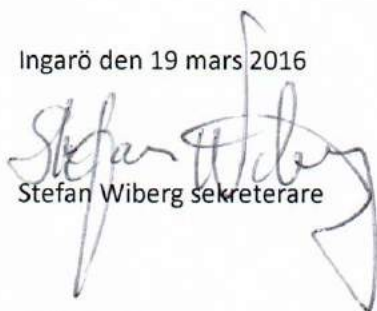 Ingarö den 19 mars 2016
Stefan Wiberg
Stefan Wiberg sekreterare